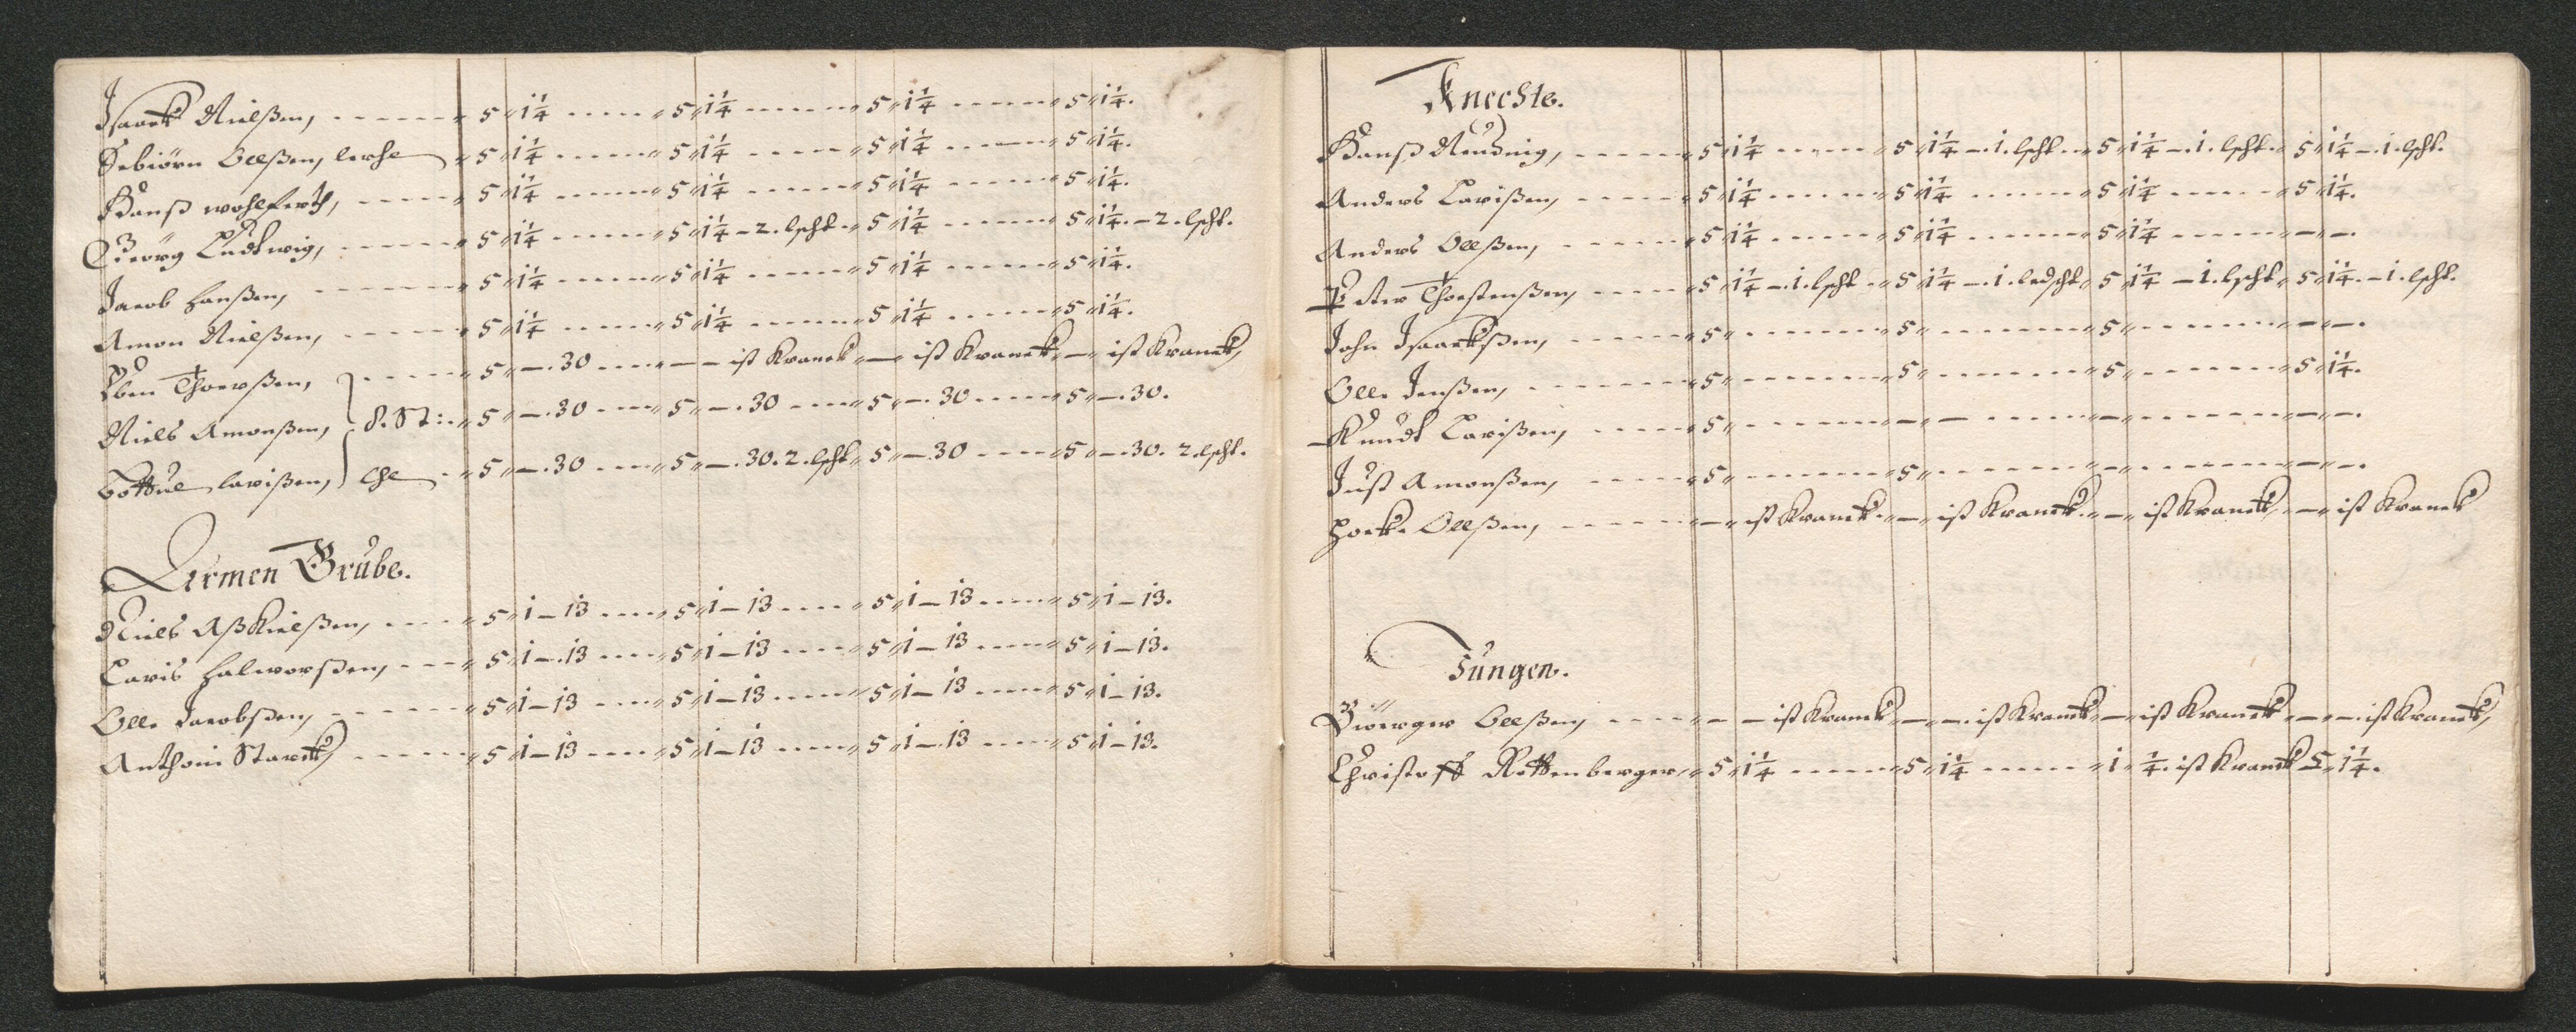 Isaack Nielßen, - - - - - - 5 " 1¼ - - - - - " 5 " 1¼ - - - - - - " 5 " 1¼ - - - - - - " 5 " 1¼.
Sebiörn Ollßen, lerche " 5 " 1¼ - - - - - " 5 " 1¼ - - - - - " 5 " 1¼ - - - - - " 5 " 1¼.
Hanß wohlfarth, - - - - - " 5 " 1¼ - - - - - - " 5 " 1¼ - - - - - - " 5 " 1¼ - - - - - - " 5 " 1¼.
Georg Ludtwig, - - - - - - " 5 " 1¼ - - - - - - " 5 " 1¼ - 2. lscht. " 5 " 1¼ - - - - - - " 5 " 1¼. - 2. lscht.
Jacob Hanßen, - - - - - - - " 5 " 1¼ - - - - - " 5 " 1¼ - - - - - - " 5 " 1¼ - - - - - - " 5 " 1¼.
Amon Nielßen, - - - - - " 5 " 1¼ - - - - - - " 5 " 1¼ - - - - - - " 5 " 1¼ - - - - - - " 5 " 1¼.
Eben Thorßen, - - - - - " 5 " - . 30 - - - - " - - ist Kranck " - ist Kranck " - ist Kranck,
Niels Amonßen, 8. St: " 5 " - . 30 - - - - " 5 " - . 30 - - - - " 5 " - . 30 - - - - " 5 " - . 30.
larißen, che " 5 " - . 30 - - - - " 5 " - . 30. 2. lscht. " 5 " - . 30 - - - - " 5 " - . 30. 2. lscht.
Armen Grube.
Niels Aßkielßen, - - - - " 5 " 1 - 13 - - - - " 5 " 1 - 13 - - - - " 5 " 1 - 13 - - - - " 5 " 1 - 13.
Laris Halworßen, - - - " 5 " 1 - 13 - - - - " 5 " 1 - 13 - - - - " 5 " 1 - 13 - - - - " 5 " 1 - 13.
Olle Jacobßen, - - - - - - " 5 " 1 - 13 - - - - " 5 " 1 - 13 - - - - " 5 " 1 - 13 - - - - " 5 " 1 - 13.
Anthoni Starck, - - - - - " 5 " 1 - 13 - - - - " 5 " 1 - 13 - - - - " 5 " 1 - 13 - - - - " 5 " 1 - 13.
Knechte.
Hanß - - - - - - " 5 " 1¼ - - - - - - " 5 " 1¼ - 1. lscht. " 5 " 1¼ - 1. lscht. " 5 " 1¼ - 1. lscht.
Anders Larißen, - - - - - " 5 " 1¼ - - - - - - " 5 " 1¼ - - - - - - " 5 " 1¼ - - - - - " 5 " 1¼.
Anders Ollßen, - - - - - - " 5 " 1¼ - - - - - - " 5 " 1¼ - - - - - - " 5 " 1¼ - - - - - - " - " - .
Peter Thorstenßen, - - - - " 5 " 1¼ - 1. lscht. " 5 " 1¼ - 1. ledscht " 5 " 1¼ - 1. lscht. " 5 " 1¼. - 1. lscht.
John Isaackßen, - - - - - - " 5 " - - - - - - - " 5 " - - - - - - - " 5 " - - - - - - - " - " - .
Olle Jenßen, - - - - - - - - " 5 " - - - - - - - " 5 " - - - - - - - " 5 " - - - - - - - " 5 " 1¼.
Knudt Larißen, - - - - - " 5 " - - - - - - - " - " - - - - - - - " - " - - - - - - - " - " - .
Just Amonßen, - - - - - " 5 " - - - - - - - " 5 " - - - - - - - " - " - - - - - - - " - " - .
Ollßen, - - - - - - - " - " ist Kranck. " - " ist Kranck. " - " ist Kranck, " - " ist Kranck
Jungen.
Biörger Ollßen, - - - - " - - ist Kranck " - - . ist Kranck " - ist Kranck " - - . ist Kranck,
Christoff Rottenberger, " 5 " 1¼ - - - - - - " 5 " 1¼ - - - - - - " 1 " ¼. ist Kranck 5 " 1¼.